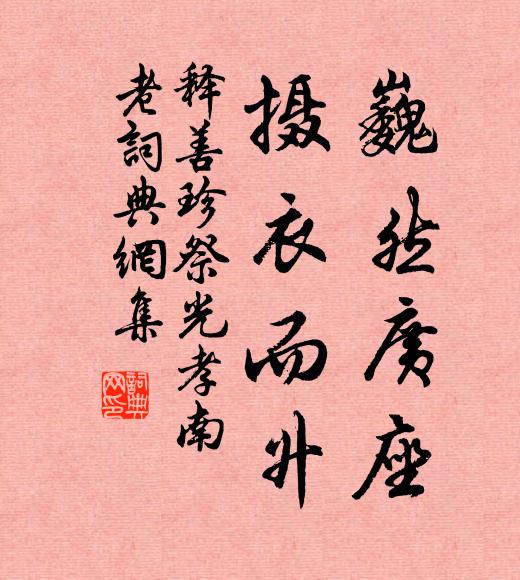 巍然廣座
摄衣而升
释善珍祭光孝南
老詞典網集
詞典
网印